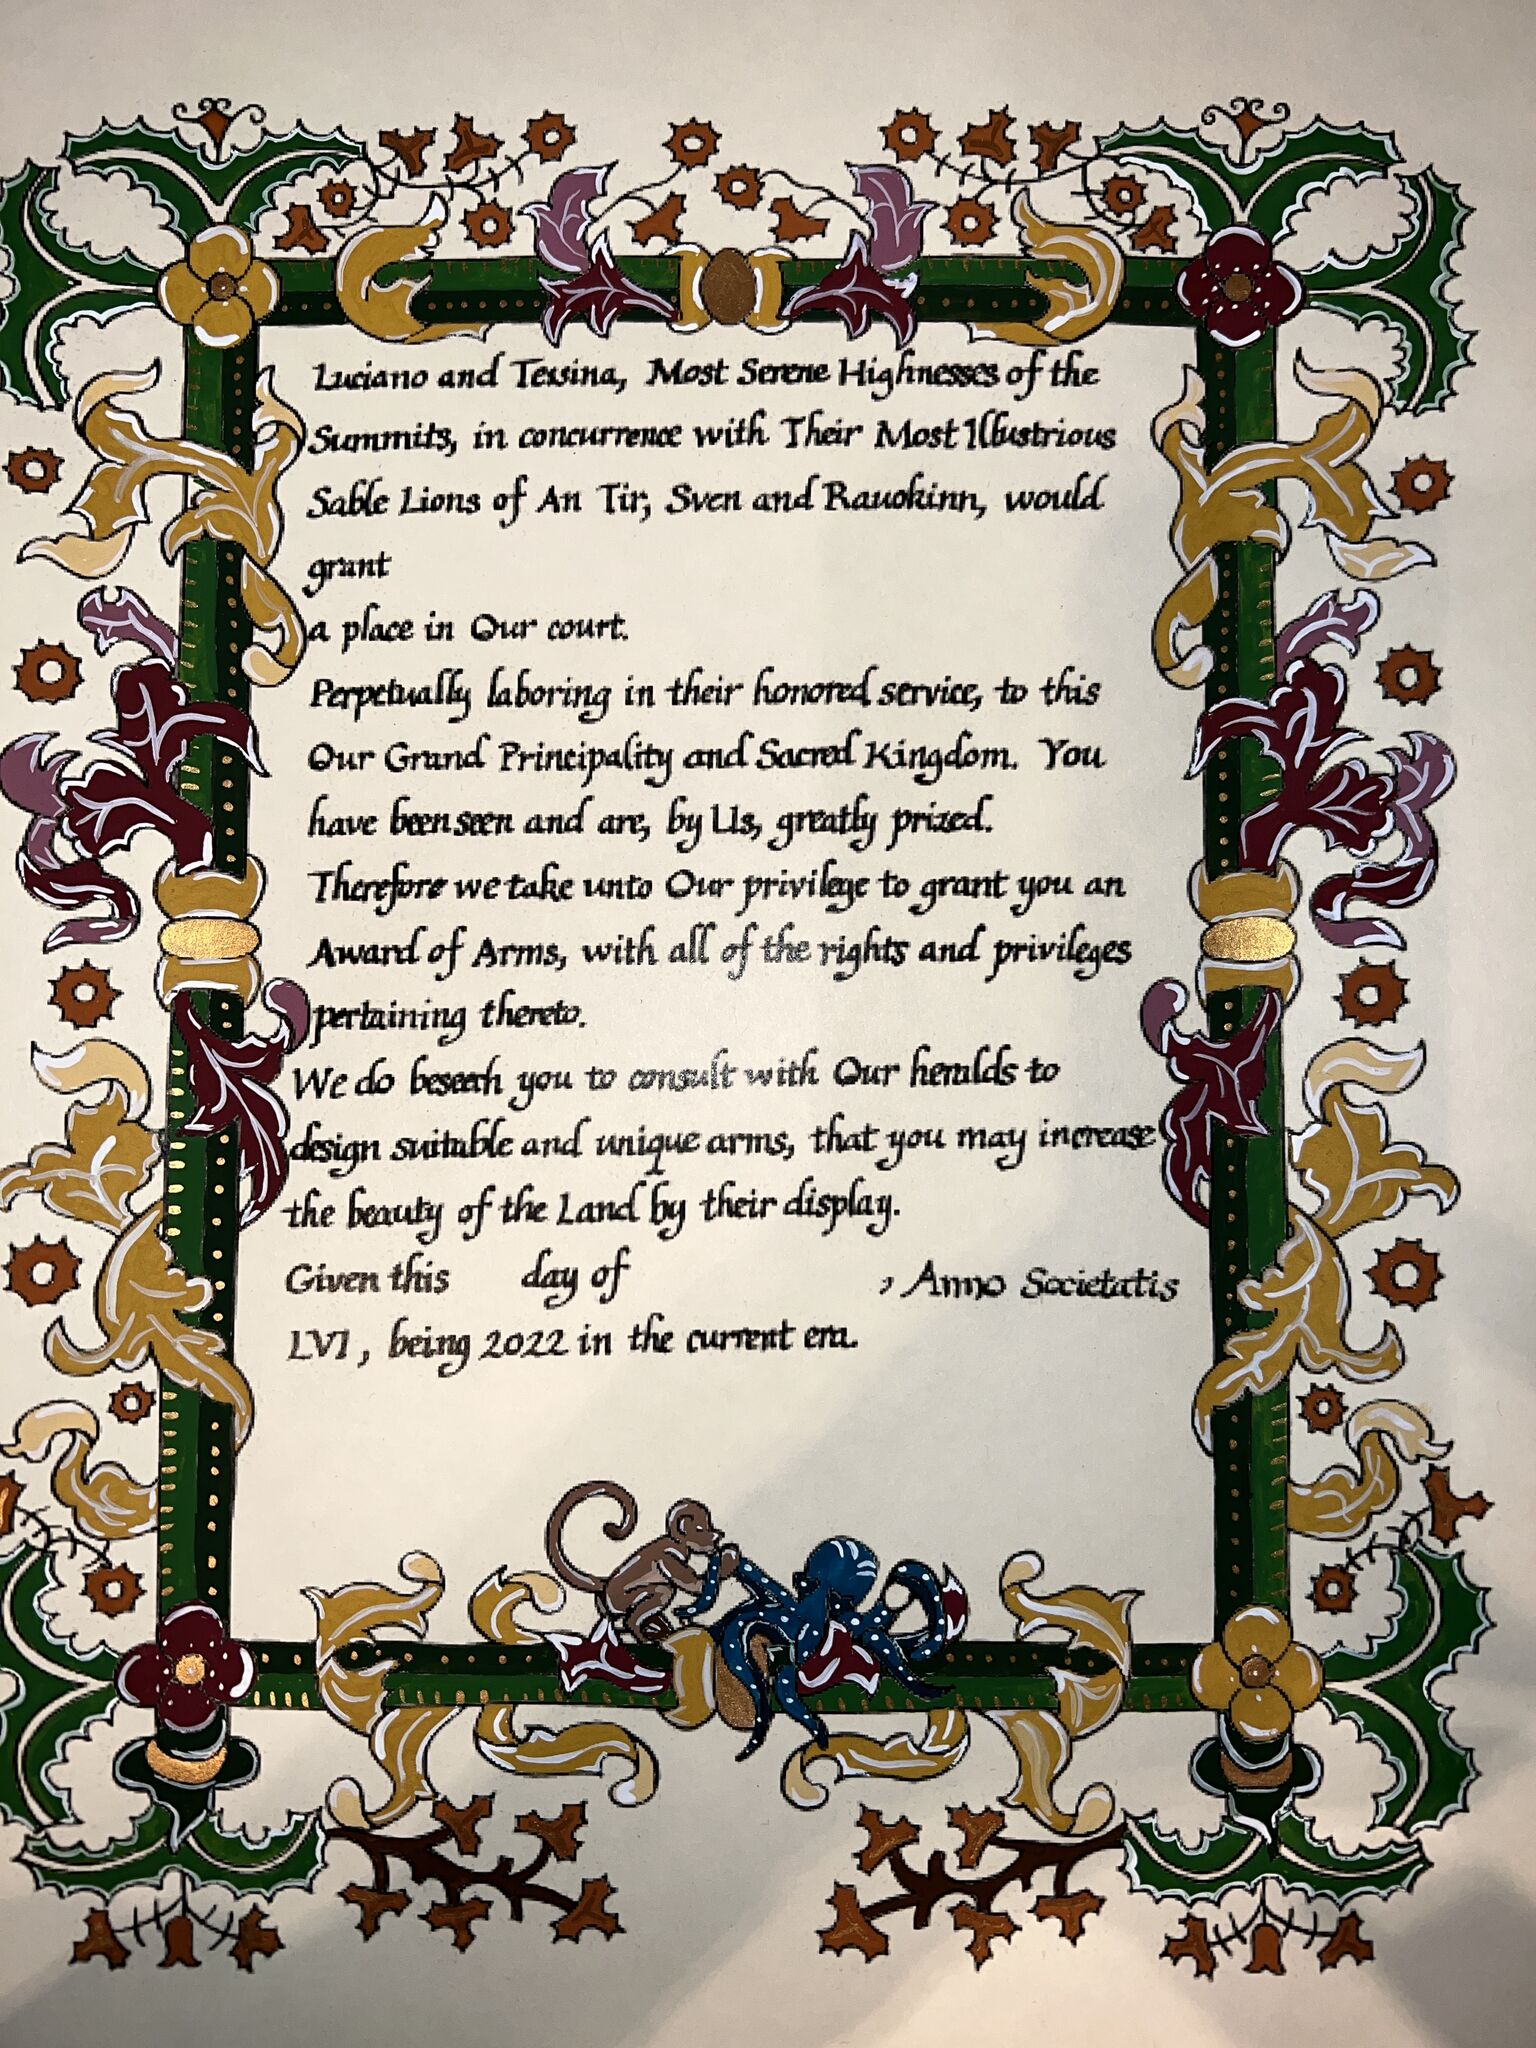 Luciano and Tessina, Most Serene Highnesses of the
Summits, in concurrence with Their Most Illustrious
Sable Lions of An Tir, Sven and Rauokinn, would
grant
a place in Our court.
Perpetually laboring in their honored service, to this
Our Grand Principality and Sacred Kingdom. You
have been seen and are, by Us, greatly prized.
Therefore we take unto Our privilege to grant you an
Award of Arms, with all of the rights and privileges
pertaining thereto.
We do beseech you to consult with Our heralds to
design suitable and unique arms, that you may increase
the beauty of the Land by their display.
Given this day of , Anno Societatis
LVI, being 2022 in the current era.